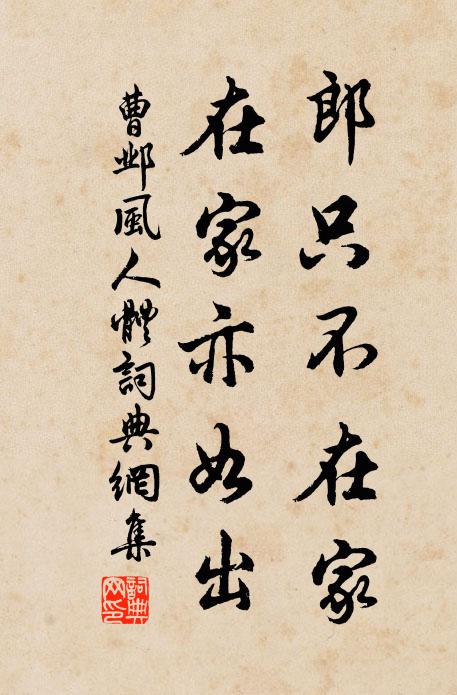 郎只不在家
在家亦如出
曹邺風人體詞典網集
詞典
网印